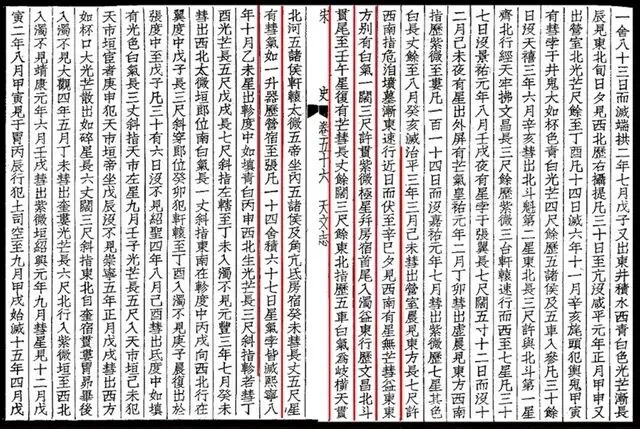 一舍八十三日而滅端拱二年七月戊子又出東井積水西青白光芒漸長
辰見東北旬日夕見西北歷右攝提凡三十日至亢沒咸平元年正月甲申又
出營室北光芒尺餘至丁酉凡十四日滅六年十一月辛亥旄頭犯輿鬼甲寅
有星孛于井鬼大如杯色青白光芒四尺餘歷五諸侯及五車入參凡三十餘
日沒天禧二年六月辛亥彗出北斗魁第二星東北長三尺許與北斗第一星
齊北行經天牢拂文昌長三尺餘歷紫微三台軒轅速行而西至七星凡三十
七日沒景祐元年八月壬戌夜有星孛于張翼長七尺闊五寸十二日而沒十
二月己未夜有星出外屏有芒氣皇祐元年二月丁卯彗出虛晨見東方西南
指歷紫微至婁凡一百一十四日而沒嘉祐元年七月彗出紫微歷七星其色
白長丈餘至八月癸亥滅治平三年三月己未彗出營室晨見東方長七尺許
西南指危洎墳墓漸東速行近日而伏至辛巳夕見西南有星無芒彗益東
方別有白氣一闊三尺許貫紫微極星并房宿首尾入濁益東行歷文昌北斗
貫尾至壬午星復有芒彗長丈餘闊三尺餘東北指歷五車白氣為岐橫天貫
宋史卷五十六 天文志
北河五諸侯軒轅太微五帝坐內五諸侯及角亢氐房宿癸未彗長丈五尺星
有彗氣如一升器歷營宿至張凡一十四舍積六十七日星氣孛皆滅熙寧八
年十月乙未星出軫度中如填青白丙申西北生光芒長三尺斜指軫若彗丁
酉光芒長五尺戊戌長七尺斜指左轄至丁未入濁不見元豐三年七月癸未
彗出西北太微垣郎位南白氣長一丈斜指東南在軫度中丙戌向西北行在
翼度中戊子長三尺斜穿郎位癸卯犯軒轅至丁酉入濁不見庚子晨復出於
張度中至戊午凡三十有六日沒不見紹聖四年八月己酉彗出西方氐度中如填
有光色白氣長三丈斜指天市左星九月壬子光芒長五尺入天市垣己未犯
天市垣宦者庚申犯天市垣帝坐戊辰沒不見崇寧五年正月戊戌彗出西方
如杯口大光芒散出如碎星長六丈闊三尺斜指東北自奎宿貫婁胃昴畢後
入濁不見大觀四年五月丁未彗出奎婁光芒長六尺北行入紫微垣至西北
入濁不見靖康元年六月壬戌彗出紫微垣紹興元年九月彗星見十二月戊
寅二年八月甲寅見于胃丙辰行犯土司空至九月甲戌始滅十五年四月戊